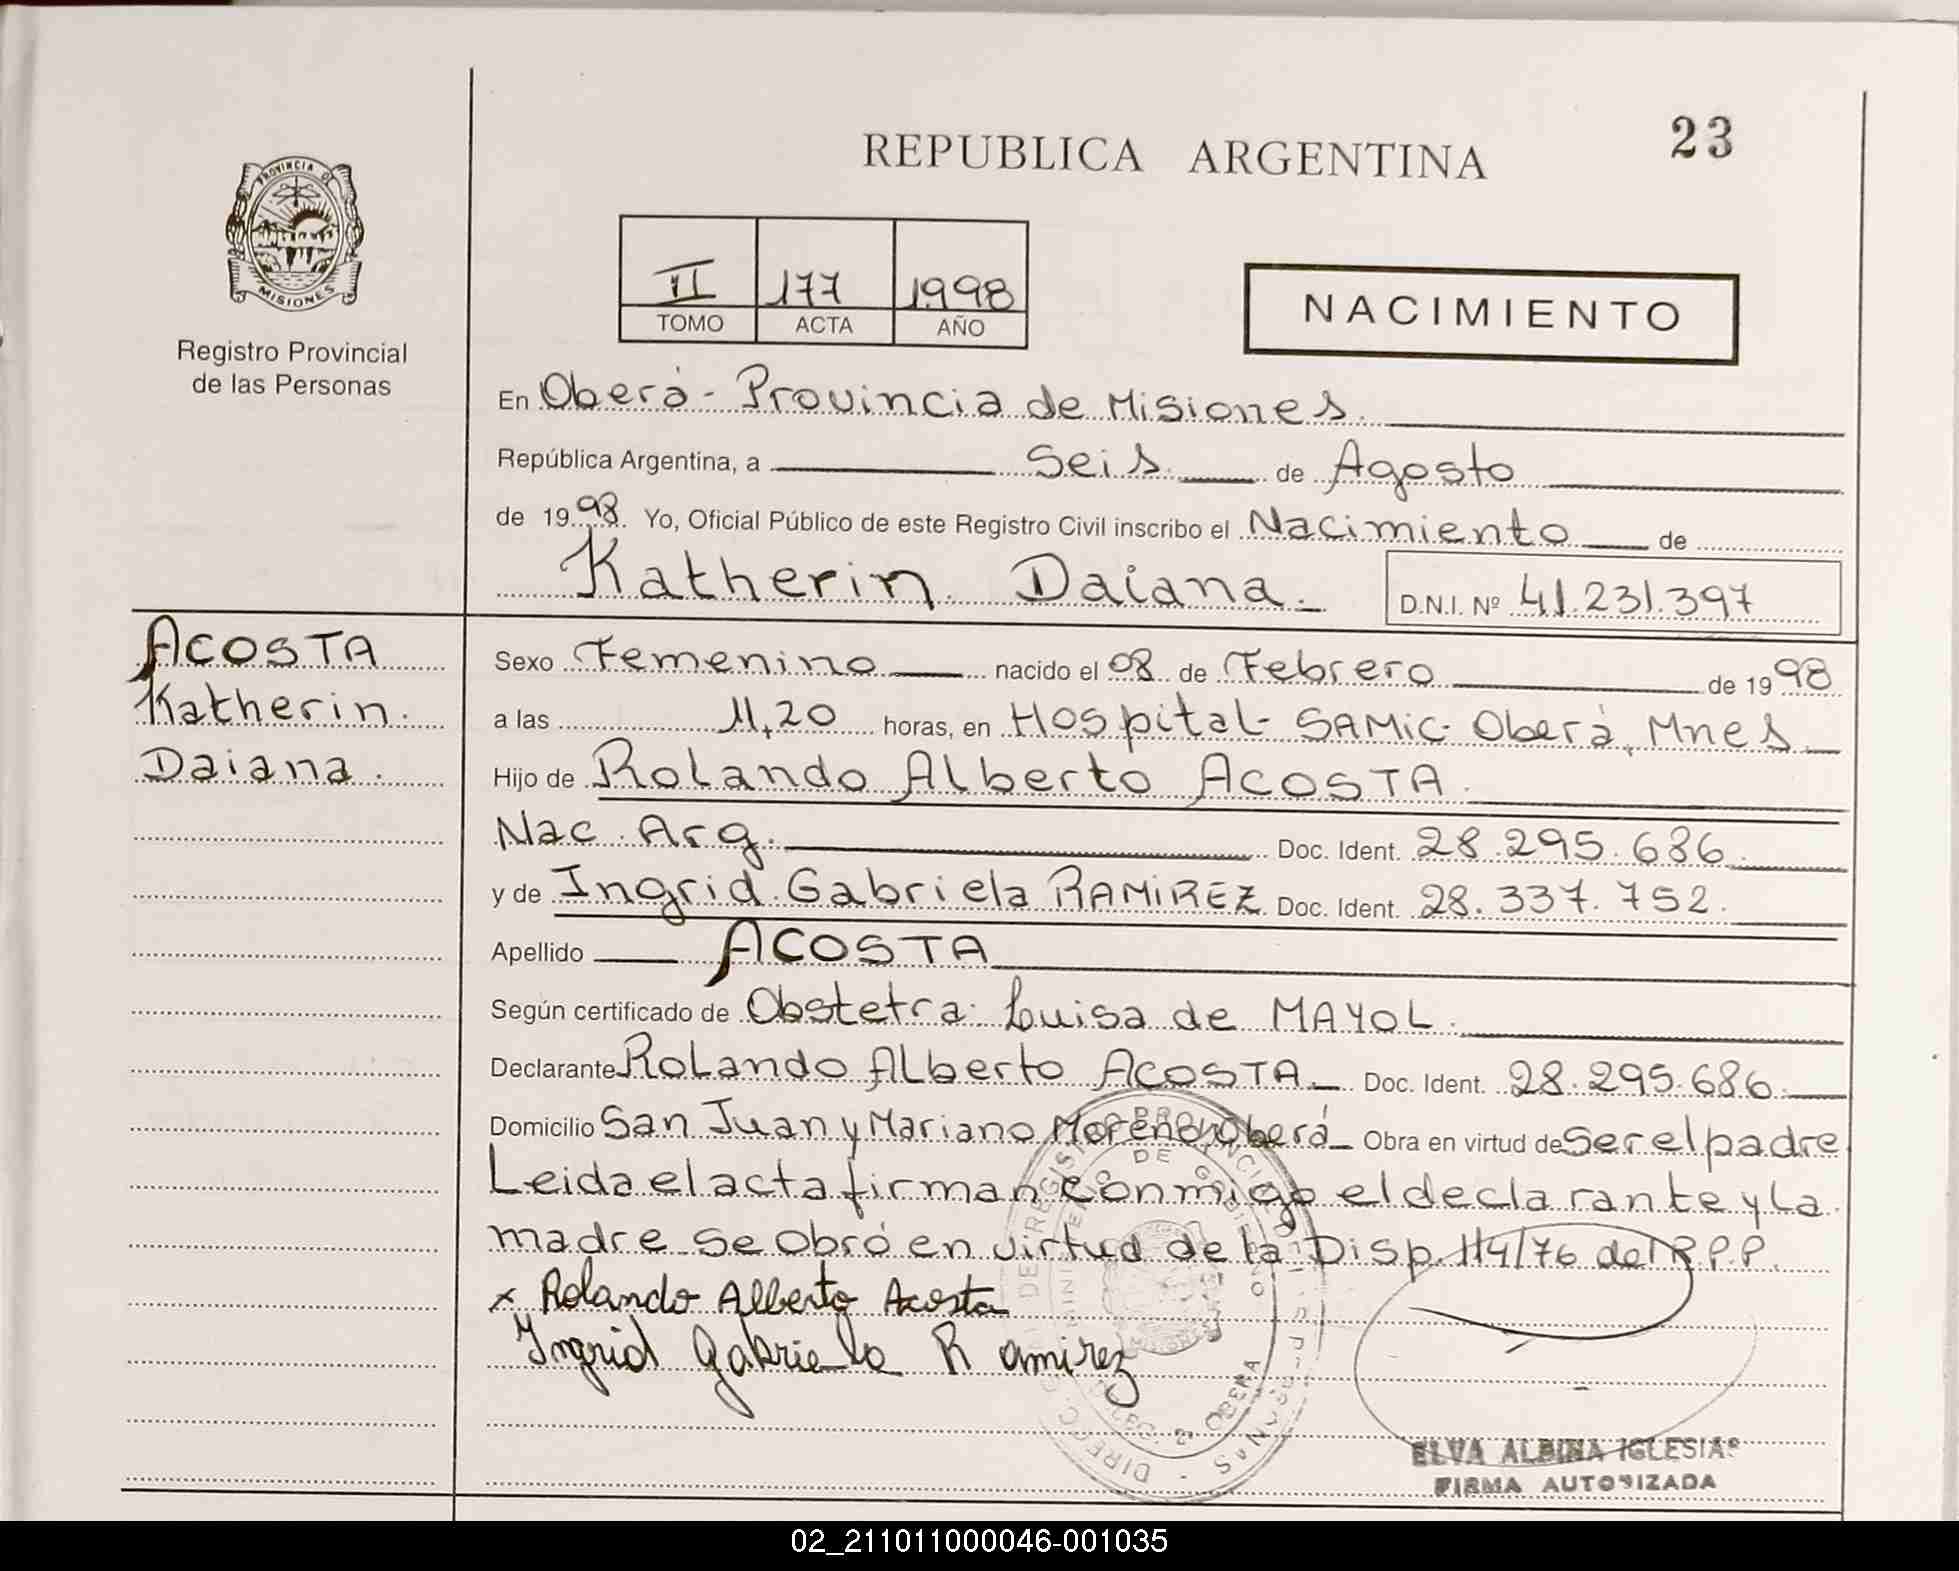 REPUBLICA ARGENTINA
23
PROVINCIA DE
MISIONES
Registro Provincial
de las Personas
II 177 1998
TOMO ACTA AÑO
NACIMIENTO
En Oberá - Provincia de Misiones.
República Argentina, a Seis de Agosto
de 1998. Yo, Oficial Público de este Registro Civil inscribo el Nacimiento de
Katherin Daiana.
D.N.I. Nº 41.231.397
ACOSTA
Katherin.
Daiana.
Sexo Femenino nacido el 08 de Febrero de 1998
a las 11,20 horas, en Hospital - SAMIC - Oberá, Mnes
Hijo de Rolando Alberto ACOSTA.
Nac. Arg. Doc. Ident. 28.295.686.
y de Ingrid Gabriela RAMIREZ. Doc. Ident. 28.337.752.
Apellido ACOSTA
Según certificado de Obstetra: Luisa de MAYOL.
Declarante Rolando Alberto ACOSTA Doc. Ident. 28.295.686.
Domicilio San Juan y Mariano Moreno, Oberá Obra en virtud de Ser el padre
Leida el acta firman conmigo el declarante y la
madre se obró en virtud de la Disp. 114/76 del R.P.P.
x Rolando Alberto Acosta
Ingrid Gabriela Ramirez
OBERA
ELVA ALBINA IGLESIAS
FIRMA AUTORIZADA
02_211011000046-001035